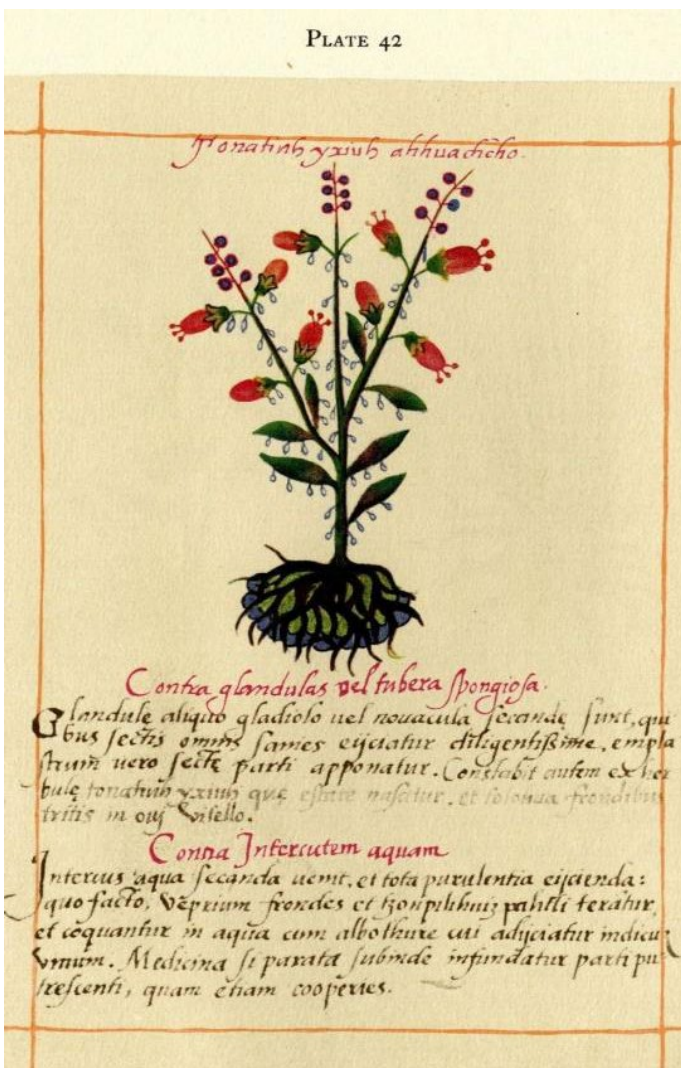 PLATE 42
Tonatiuh yxiuh ahhuachcho.
Contra glandulas vel tubera spongiosa.
Glandulę aliquo gladiolo uel nouacula secandę sunt, qui
bus sectis omnis sanies eijciatur diligentissime, empla
strum vero sectę parti apponatur. Constabit autem ex her
bulę tonatiuh yxiuh quę estate nascitur, et frondibus
tritis in oui vitello.
Contra Intercutem aquam
Intercus aqua secanda uenit, et tota purulentia eijcienda:
quo facto, veprium frondes et pahtli teratur,
et coquantur in aqua cum albo thure cui adijciatur indicum
vinum. Medicina si parata subinde infundatur parti pu
trescenti, quam etiam cooperies.